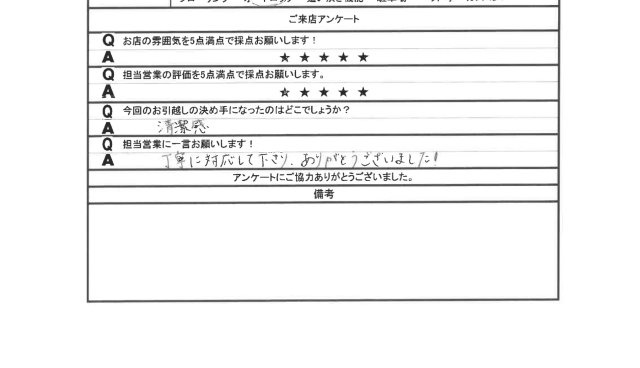 ご来店アンケート
Q お店の雰囲気を5点満点で採点お願いします！
A ★ ★ ★ ★ ★
Q 担当営業の評価を5点満点で採点お願いします。
A ★ ★ ★ ★ ★
Q 今回のお引越しの決め手になったのはどこでしょうか？
A 清潔感
Q 担当営業に一言お願いします！
A 丁寧に対応して下さり、ありがとうございました！
アンケートにご協力ありがとうございました。
備考